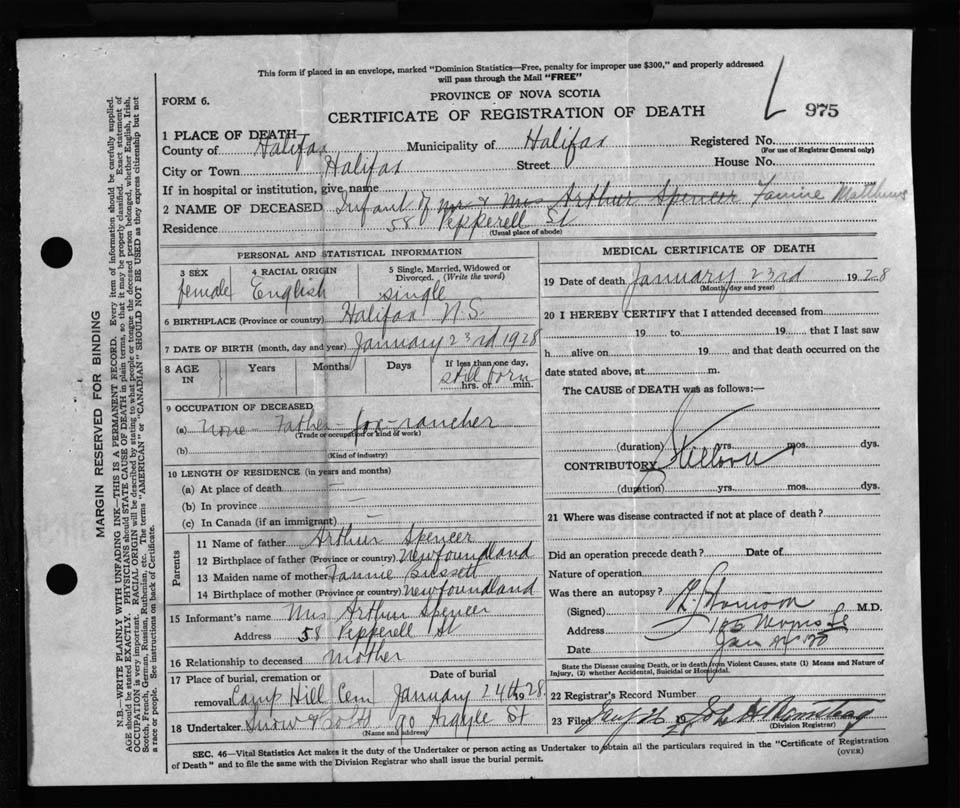 This form if placed in an envelope, marked "Dominion Statistics—Free, penalty for improper use $300," and properly addressed
will pass through the Mail "FREE"
PROVINCE OF NOVA SCOTIA
FORM 6.
CERTIFICATE OF REGISTRATION OF DEATH
975
1 PLACE OF DEATH
County of Halifax Municipality of Halifax Registered No.
(For use of Registrar General only)
City or Town Halifax Street House No.
If in hospital or institution, give name
2 NAME OF DECEASED Infant of Mr & Mrs Arthur Spencer Fannie Matthews
Residence 58 Pepperell St
(Usual place of abode)
PERSONAL AND STATISTICAL INFORMATION
3 SEX female
4 RACIAL ORIGIN English
5 Single, Married, Widowed or Divorced. (Write the word) single
6 BIRTHPLACE (Province or country) Halifax N.S.
7 DATE OF BIRTH (month, day and year) January 23rd 1928
8 AGE IN Years Months Days If less than one day, hrs. or min. still born
9 OCCUPATION OF DECEASED
(a) None - Father - fox-rancher
(Trade or occupation or kind of work)
(b)
(Kind of industry)
10 LENGTH OF RESIDENCE (in years and months)
(a) At place of death
(b) In province
(c) In Canada (if an immigrant)
Parents
11 Name of father Arthur Spencer
12 Birthplace of father (Province or country) Newfoundland
13 Maiden name of mother Fannie Bissett
14 Birthplace of mother (Province or country) Newfoundland
15 Informant's name Mrs Arthur Spencer
Address 58 Pepperell St
16 Relationship to deceased mother
17 Place of burial, cremation or Date of burial
removal Camp Hill Cem January 24th 1928
18 Undertaker Snow & 90 Argyle St
(Name and address)
MEDICAL CERTIFICATE OF DEATH
19 Date of death January 23rd 1928
(Month, day and year)
20 I HEREBY CERTIFY that I attended deceased from
19 to 19 that I last saw
h alive on 19 and that death occurred on the
date stated above, at m.
The CAUSE of DEATH was as follows:—
(duration) yrs. mos. dys.
CONTRIBUTORY Stillborn
(duration) yrs. mos. dys.
21 Where was disease contracted if not at place of death?
Did an operation precede death? Date of
Nature of operation
Was there an autopsy?
(Signed) M.D.
Address Morris St
Date Jan
State the Disease causing Death, or in death from Violent Causes, state (1) Means and Nature of
Injury, (2) whether Accidental, Suicidal or Homicidal.
22 Registrar's Record Number
23 Filed 26 1928 John
(Division Registrar)
SEC. 46—Vital Statistics Act makes it the duty of the Undertaker or person acting as Undertaker to obtain all the particulars required in the "Certificate of Registration
of Death" and to file the same with the Division Registrar who shall issue the burial permit.
(OVER)
MARGIN RESERVED FOR BINDING
N.B.—WRITE PLAINLY WITH UNFADING INK—THIS IS A PERMANENT RECORD. Every item of information should be carefully supplied.
AGE should be stated EXACTLY. PHYSICIANS should STATE CAUSE OF DEATH in plain terms, so that it may be properly classified. Exact statement of
OCCUPATION is very important. RACIAL ORIGIN will be described by stating to what people or tongue the deceased person belonged, whether English, Irish,
Scotch, French, German, Russian, Ruthenian, etc. The terms "AMERICAN" or "CANADIAN" SHOULD NOT BE USED as they express citizenship but not
a race or people. See instructions on back of Certificate.